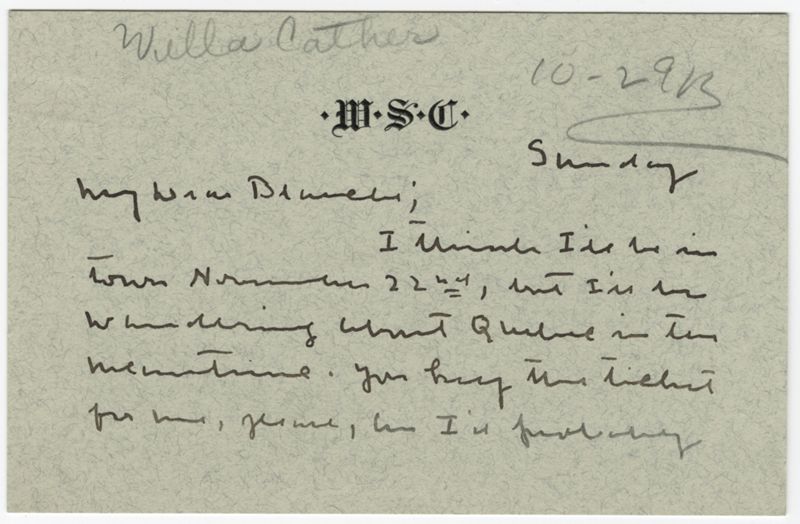 Willa Cather
10-29
·W·S·C·
Sunday
My Dear Blanche;
I think I'll be in
town November 22nd, but I'll be
wandering about Quebec in the
meantime. You buy the ticket
for me, please, and I'll probably